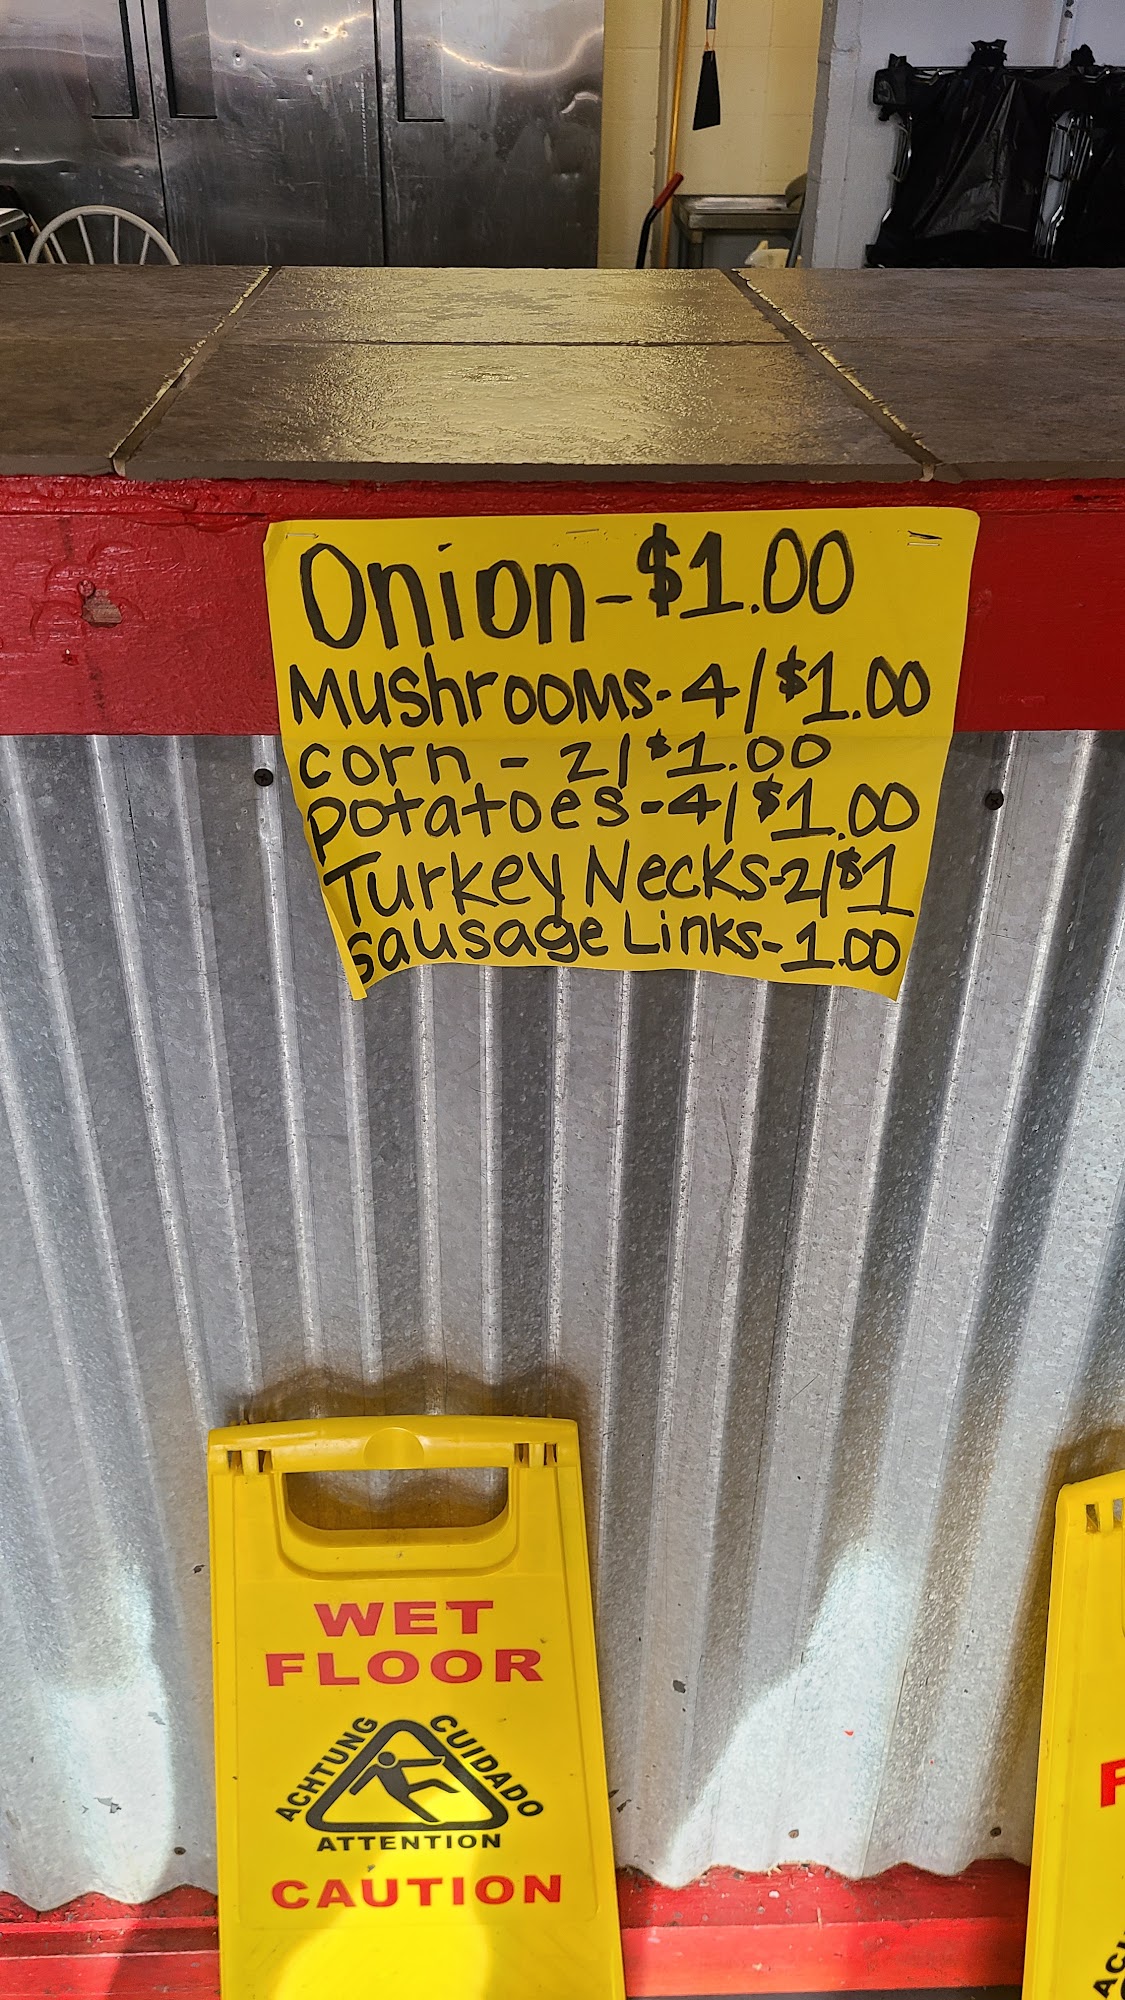 Onion - $1.00
Mushrooms - 4/$1.00
corn - 2/$1.00
potatoes - 4/$1.00
Turkey Necks - 2/$1
sausage Links - 1.00
WET
FLOOR
ACHTUNG CUIDADO
ATTENTION
CAUTION
F
AC